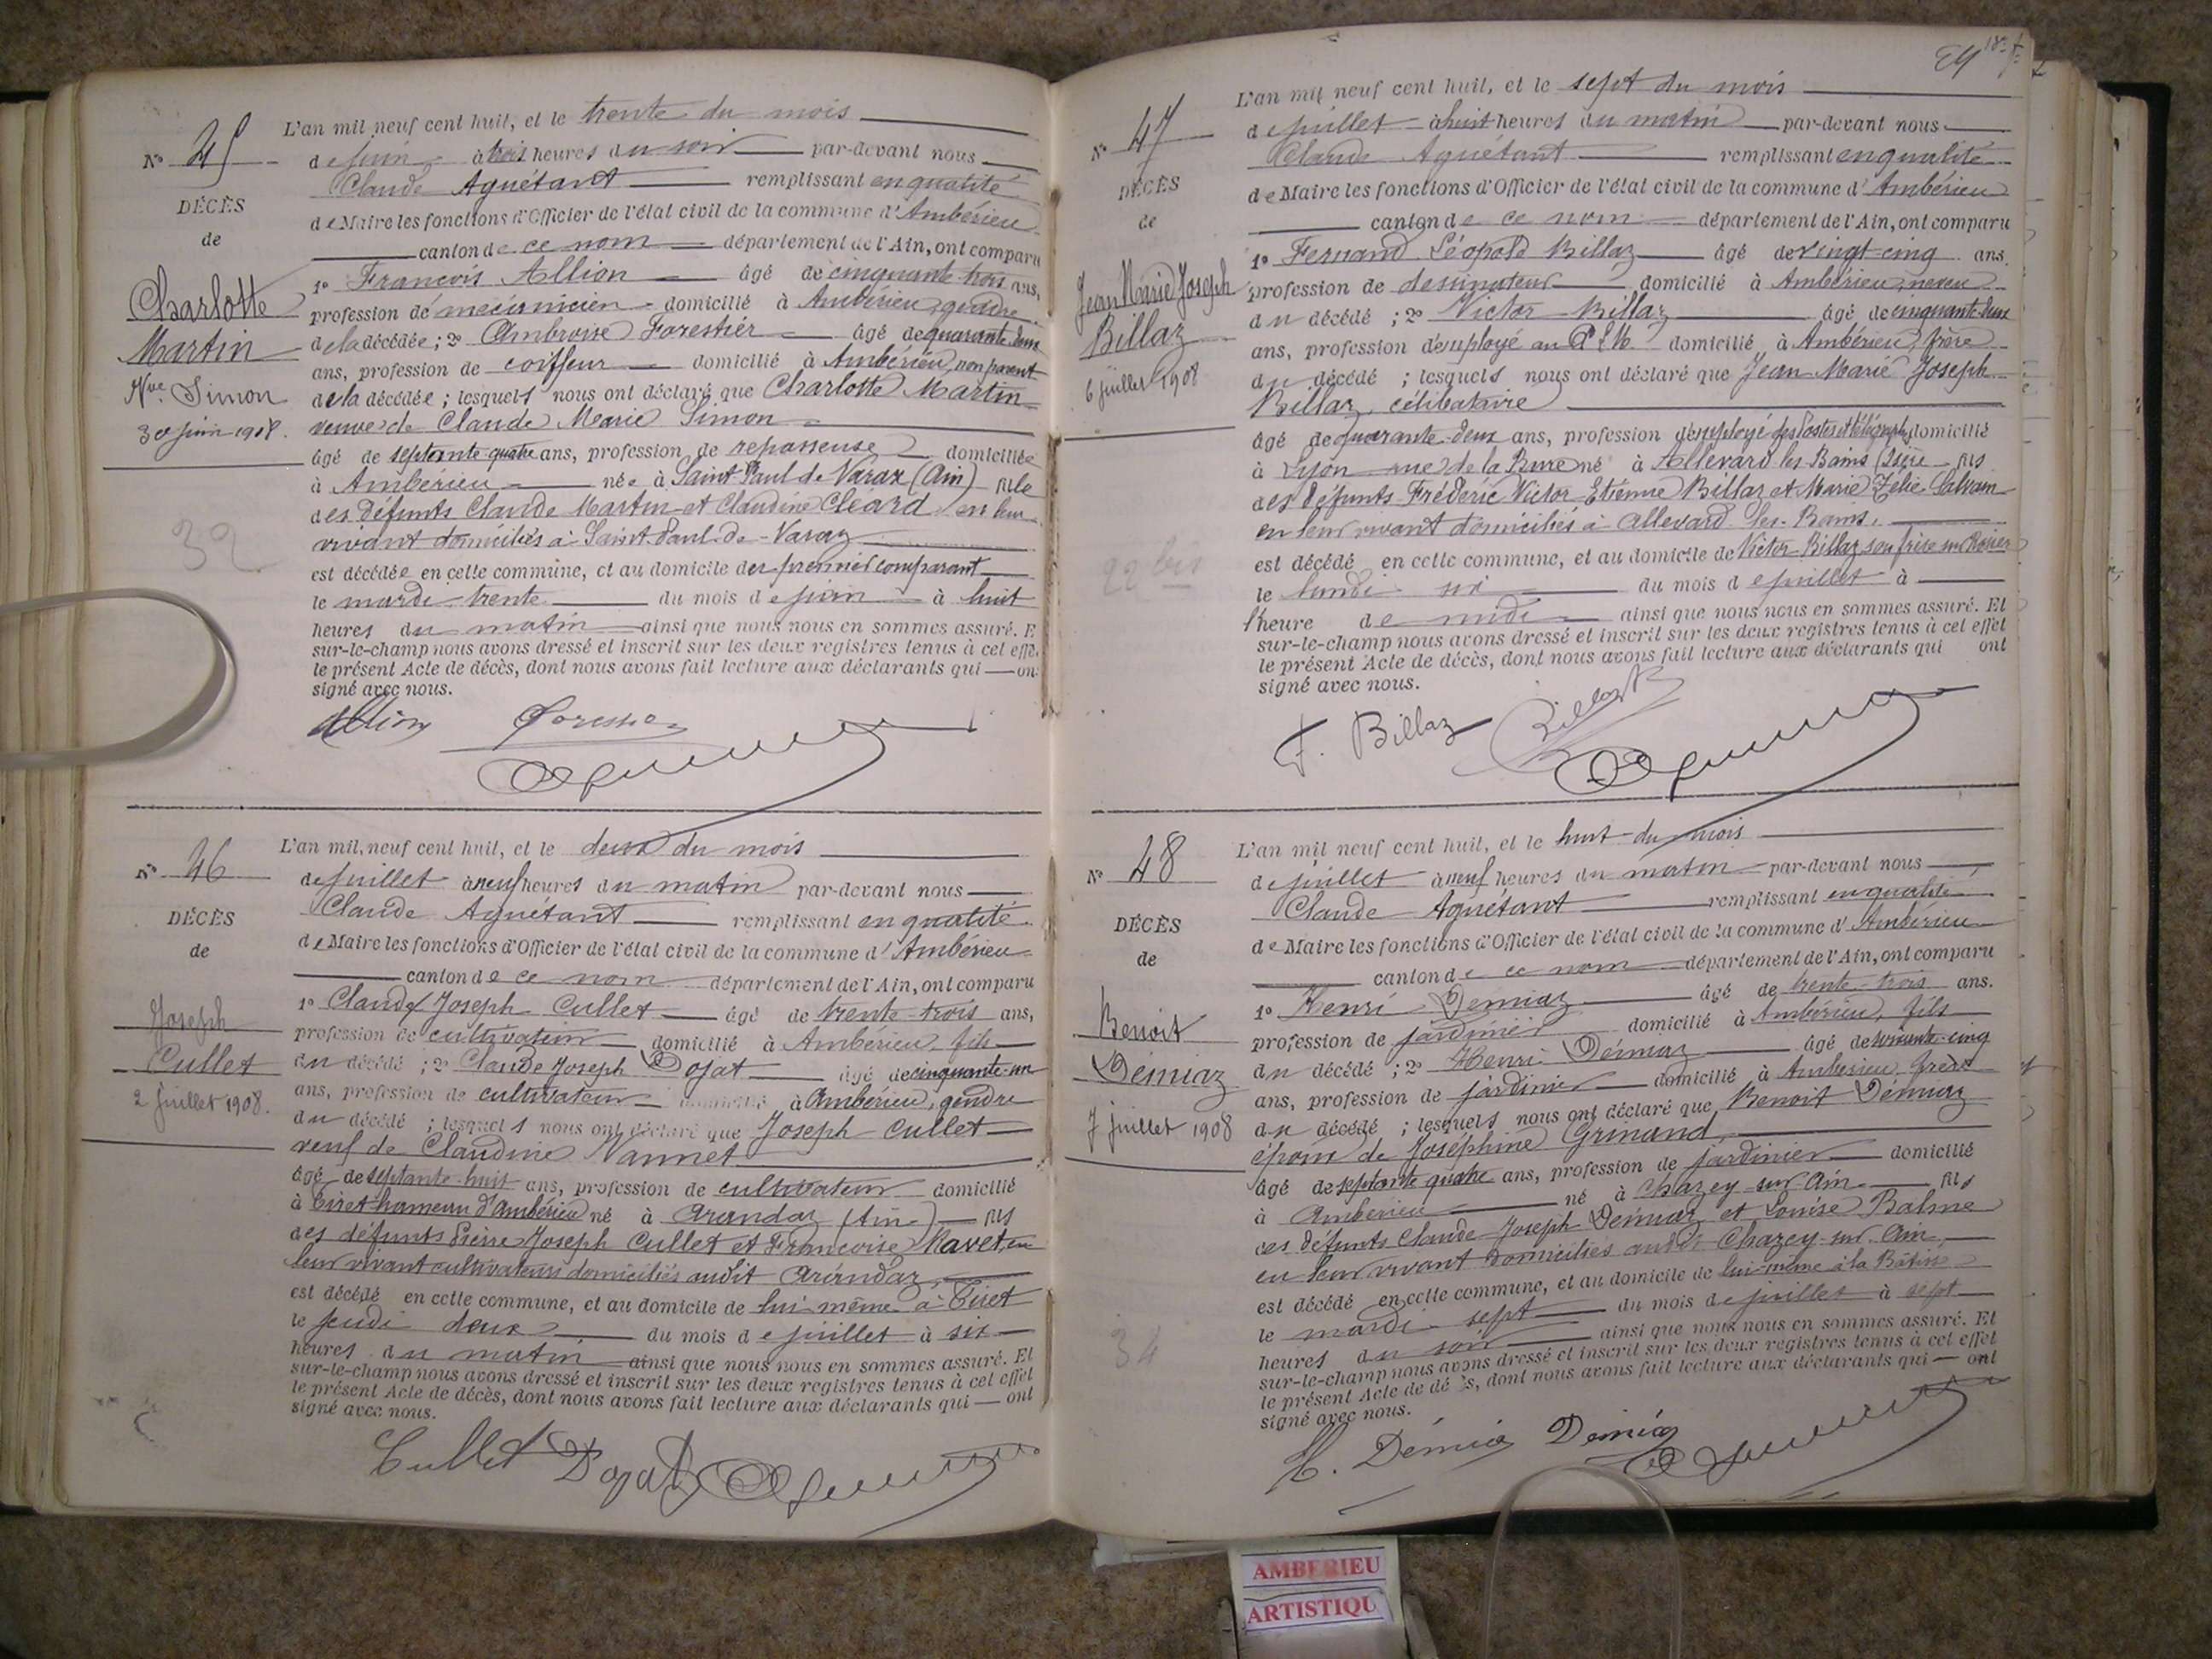 L'an mil neuf cent huit, et le trente du mois
N° 45
de juin à trois heures du soir par-devant nous
Claude Aguétant remplissant en qualité
DÉCÈS
de Maire les fonctions d'Officier de l'état civil de la commune d'Ambérieu
de
canton de ce nom département de l'Ain, ont comparu
1° François Allion âgé de cinquante trois ans,
Charlotte
profession de mécanicien domicilié à Ambérieu, gendre
Martin
de la décédée ; 2° Ambroise Forestier âgé de quarante deux
ans, profession de coiffeur domicilié à Ambérieu, non parent
Vve Simon
de la décédée ; lesquels nous ont déclaré que Charlotte Martin
30 juin 1908.
veuve de Claude Marie Simon
âgé de septante quatre ans, profession de repasseuse domiciliée
à Ambérieu née à Saint Paul de Varax (Ain) fille
des défunts Claude Martin et Claudine Cléard en leur
vivant domiciliés à Saint-Paul-de-Varax
32
est décédée en cette commune, et au domicile du premier comparant
le mardi trente du mois de juin à huit
heures du matin ainsi que nous nous en sommes assuré. E
sur-le-champ nous avons dressé et inscrit sur les deux registres tenus à cet effe
le présent Acte de décès, dont nous avons fait lecture aux déclarants qui on
signé avec nous.
Allion Forestier
L'an mil neuf cent huit, et le deux du mois
N° 46
de juillet à neuf heures du matin par-devant nous
Claude Aguétant remplissant en qualité
DÉCÈS
de Maire les fonctions d'Officier de l'état civil de la commune d'Ambérieu
de
canton de ce nom département de l'Ain, ont comparu
1° Claude Joseph Cullet âgé de trente-trois ans,
Joseph
profession de cultivateur domicilié à Ambérieu, fils
Cullet
du décédé ; 2° Claude Joseph Dojat âgé de cinquante-un
2 juillet 1908.
ans, profession de cultivateur domicilié à Ambérieu, gendre
du décédé ; lesquels nous ont déclaré que Joseph Cullet
veuf de Claudine Vannet
âgé de septante-huit ans, profession de cultivateur domicilié
à Tiret hameau d'Ambérieu né à Arandaz (Ain) fils
des défunts Pierre Joseph Cullet et Françoise Ravet, en
leur vivant cultivateurs domiciliés audit Arandaz,
est décédé en cette commune, et au domicile de lui-même à Tiret
le jeudi deux du mois de juillet à six
heures du matin ainsi que nous nous en sommes assuré. Et
sur-le-champ nous avons dressé et inscrit sur les deux registres tenus à cet effet
le présent Acte de décès, dont nous avons fait lecture aux déclarants qui ont
signé avec nous.
Cullet Dojat
L'an mil neuf cent huit, et le sept du mois
N° 47
de juillet à huit heures du matin par-devant nous
Claude Aguétant remplissant en qualité
DÉCÈS
de Maire les fonctions d'Officier de l'état civil de la commune d'Ambérieu
de
canton de ce nom département de l'Ain, ont comparu
1° Fernand Léopold Billaz âgé de vingt-cinq ans.
Jean Marie Joseph
profession de dessinateur domicilié à Ambérieu, neveu
Billaz
du décédé ; 2° Victor Billaz âgé de cinquante-deux
ans, profession d'employé au P.L.M. domicilié à Ambérieu, frère
6 juillet 1908
du décédé ; lesquels nous ont déclaré que Jean Marie Joseph
Billaz, célibataire
âgé de quarante-deux ans, profession d'employé des Postes et télégraphes domicilié
à Lyon rue de la Bure né à Allevard les Bains (Isère fils
des défunts Fréderic Victor Etienne Billaz et Marie Zélie
en leur vivant domiciliés à Allevard les-Bains,
22 bis
est décédé en cette commune, et au domicile de Victor Billaz son frère
le lundi six du mois de juillet à
l'heure de midi ainsi que nous nous en sommes assuré. Et
sur-le-champ nous avons dressé et inscrit sur les deux registres tenus à cet effet
le présent Acte de décès, dont nous avons fait lecture aux déclarants qui ont
signé avec nous.
F. Billaz Billaz
L'an mil neuf cent huit, et le huit du mois
N° 48
de juillet à neuf heures du matin par-devant nous
Claude Aguétant remplissant en qualité
DÉCÈS
de Maire les fonctions d'Officier de l'état civil de la commune d'Ambérieu
de
canton de ce nom département de l'Ain, ont comparu
1° Henri Démiaz âgé de trente-trois ans.
Benoit
profession de jardinier domicilié à Ambérieu, fils
Démiaz
du décédé ; 2° Henri Démiaz âgé de soixante-cinq
ans, profession de jardinier domicilié à Ambérieu frère
7 juillet 1908
du décédé ; lesquels nous ont déclaré que Benoit Démiaz
époux de Joséphine Grinand
âgé de septante quatre ans, profession de jardinier domicilié
à Ambérieu né à Chazey-sur-Ain fils
des défunts Claude Joseph Démiaz et Louise Balme
en leur vivant domiciliés audit Chazey-sur-Ain,
est décédé en cette commune, et au domicile de lui-même à la Bâtie
le mardi sept du mois de juillet à sept
34
heures du soir ainsi que nous nous en sommes assuré. Et
sur-le-champ nous avons dressé et inscrit sur les deux registres tenus à cet effet
le présent Acte de décès, dont nous avons fait lecture aux déclarants qui ont
signé avec nous.
H. Démiaz Démiaz
AMBERIEU
ARTISTIQU